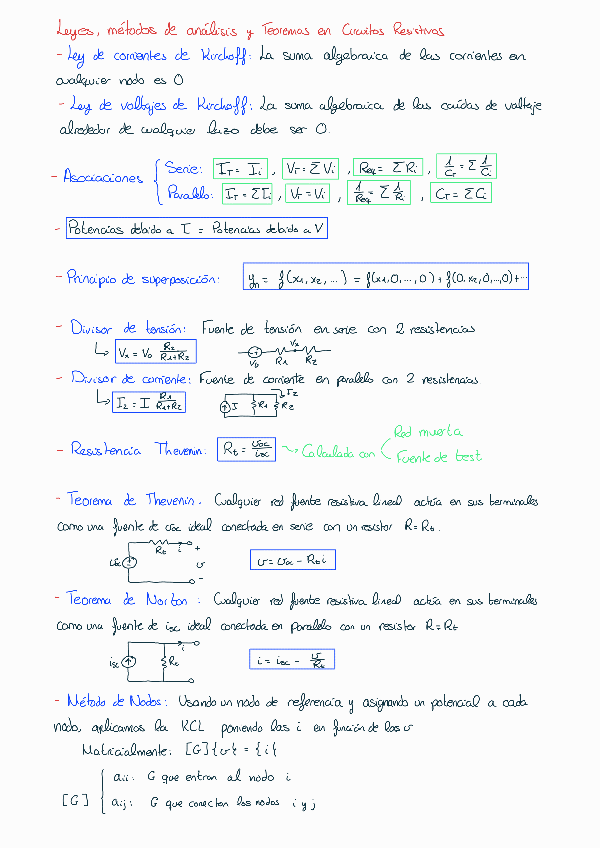 Leyes, métodos de análisis y Teoremas en Circuitos Resistivos
- Ley de corrientes de Kirchoff: La suma algebraica de las corrientes en
cualquier nodo es 0
- Ley de voltajes de Kirchoff: La suma algebraica de las caídas de voltaje
alrededor de cualquier lazo debe ser 0.
- Asociaciones { Serie: I_T = I_i , V_T = ΣV_i , R_eq = ΣR_i , 1/C_T = Σ 1/C_i
Paralelo: I_T = ΣI_i , V_T = V_i , 1/R_eq = Σ 1/R_i , C_T = ΣC_i
- Potencias debido a I = Potencias debido a V
- Principio de superposición: y_n = f(x1,x2,...) = f(x1,0,...,0)+f(0,x2,0,..,0)+...
- Divisor de tensión: Fuente de tensión en serie con 2 resistencias
↳ Vx = V0 R2/(R1+R2) V0 R1 Vx R2
- Divisor de corriente: Fuente de corriente en paralelo con 2 resistencias
↳ I2 = I R1/(R1+R2) I R1 R2 I2
- Resistencia Thevenin: Rt = voc/isc → Calculada con Red muerta
Fuente de test
- Teorema de Thevenin. Cualquier red fuente resistiva lineal actúa en sus terminales
como una fuente de voc ideal conectada en serie con un resistor R=Rt.
Rt i + voc v - v = voc - Rt i
- Teorema de Norton : Cualquier red fuente resistiva lineal actúa en sus terminales
como una fuente de isc ideal conectada en paralelo con un resistor R=Rt
isc Rt i i = isc - v/Rt
- Método de Nodos: Usando un nodo de referencia y asignando un potencial a cada
nodo, aplicamos la KCL poniendo las i en función de los v
Matricialmente: [G]{v} = {i}
[G] { aii: G que entran al nodo i
aij: G que conectan los nodos i y j